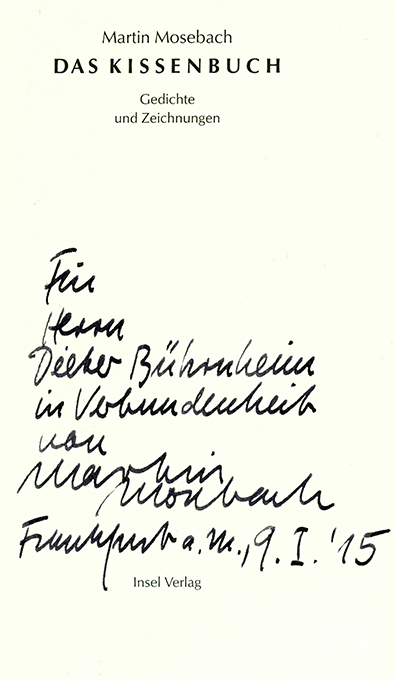 Martin Mosebach
DAS KISSENBUCH
Gedichte
und Zeichnungen
Für
Herrn
Dieter Bührnheim
in Verbundenheit
von
Martin
Mosebach
Frankfurt a. M., 9. I. '15
Insel Verlag